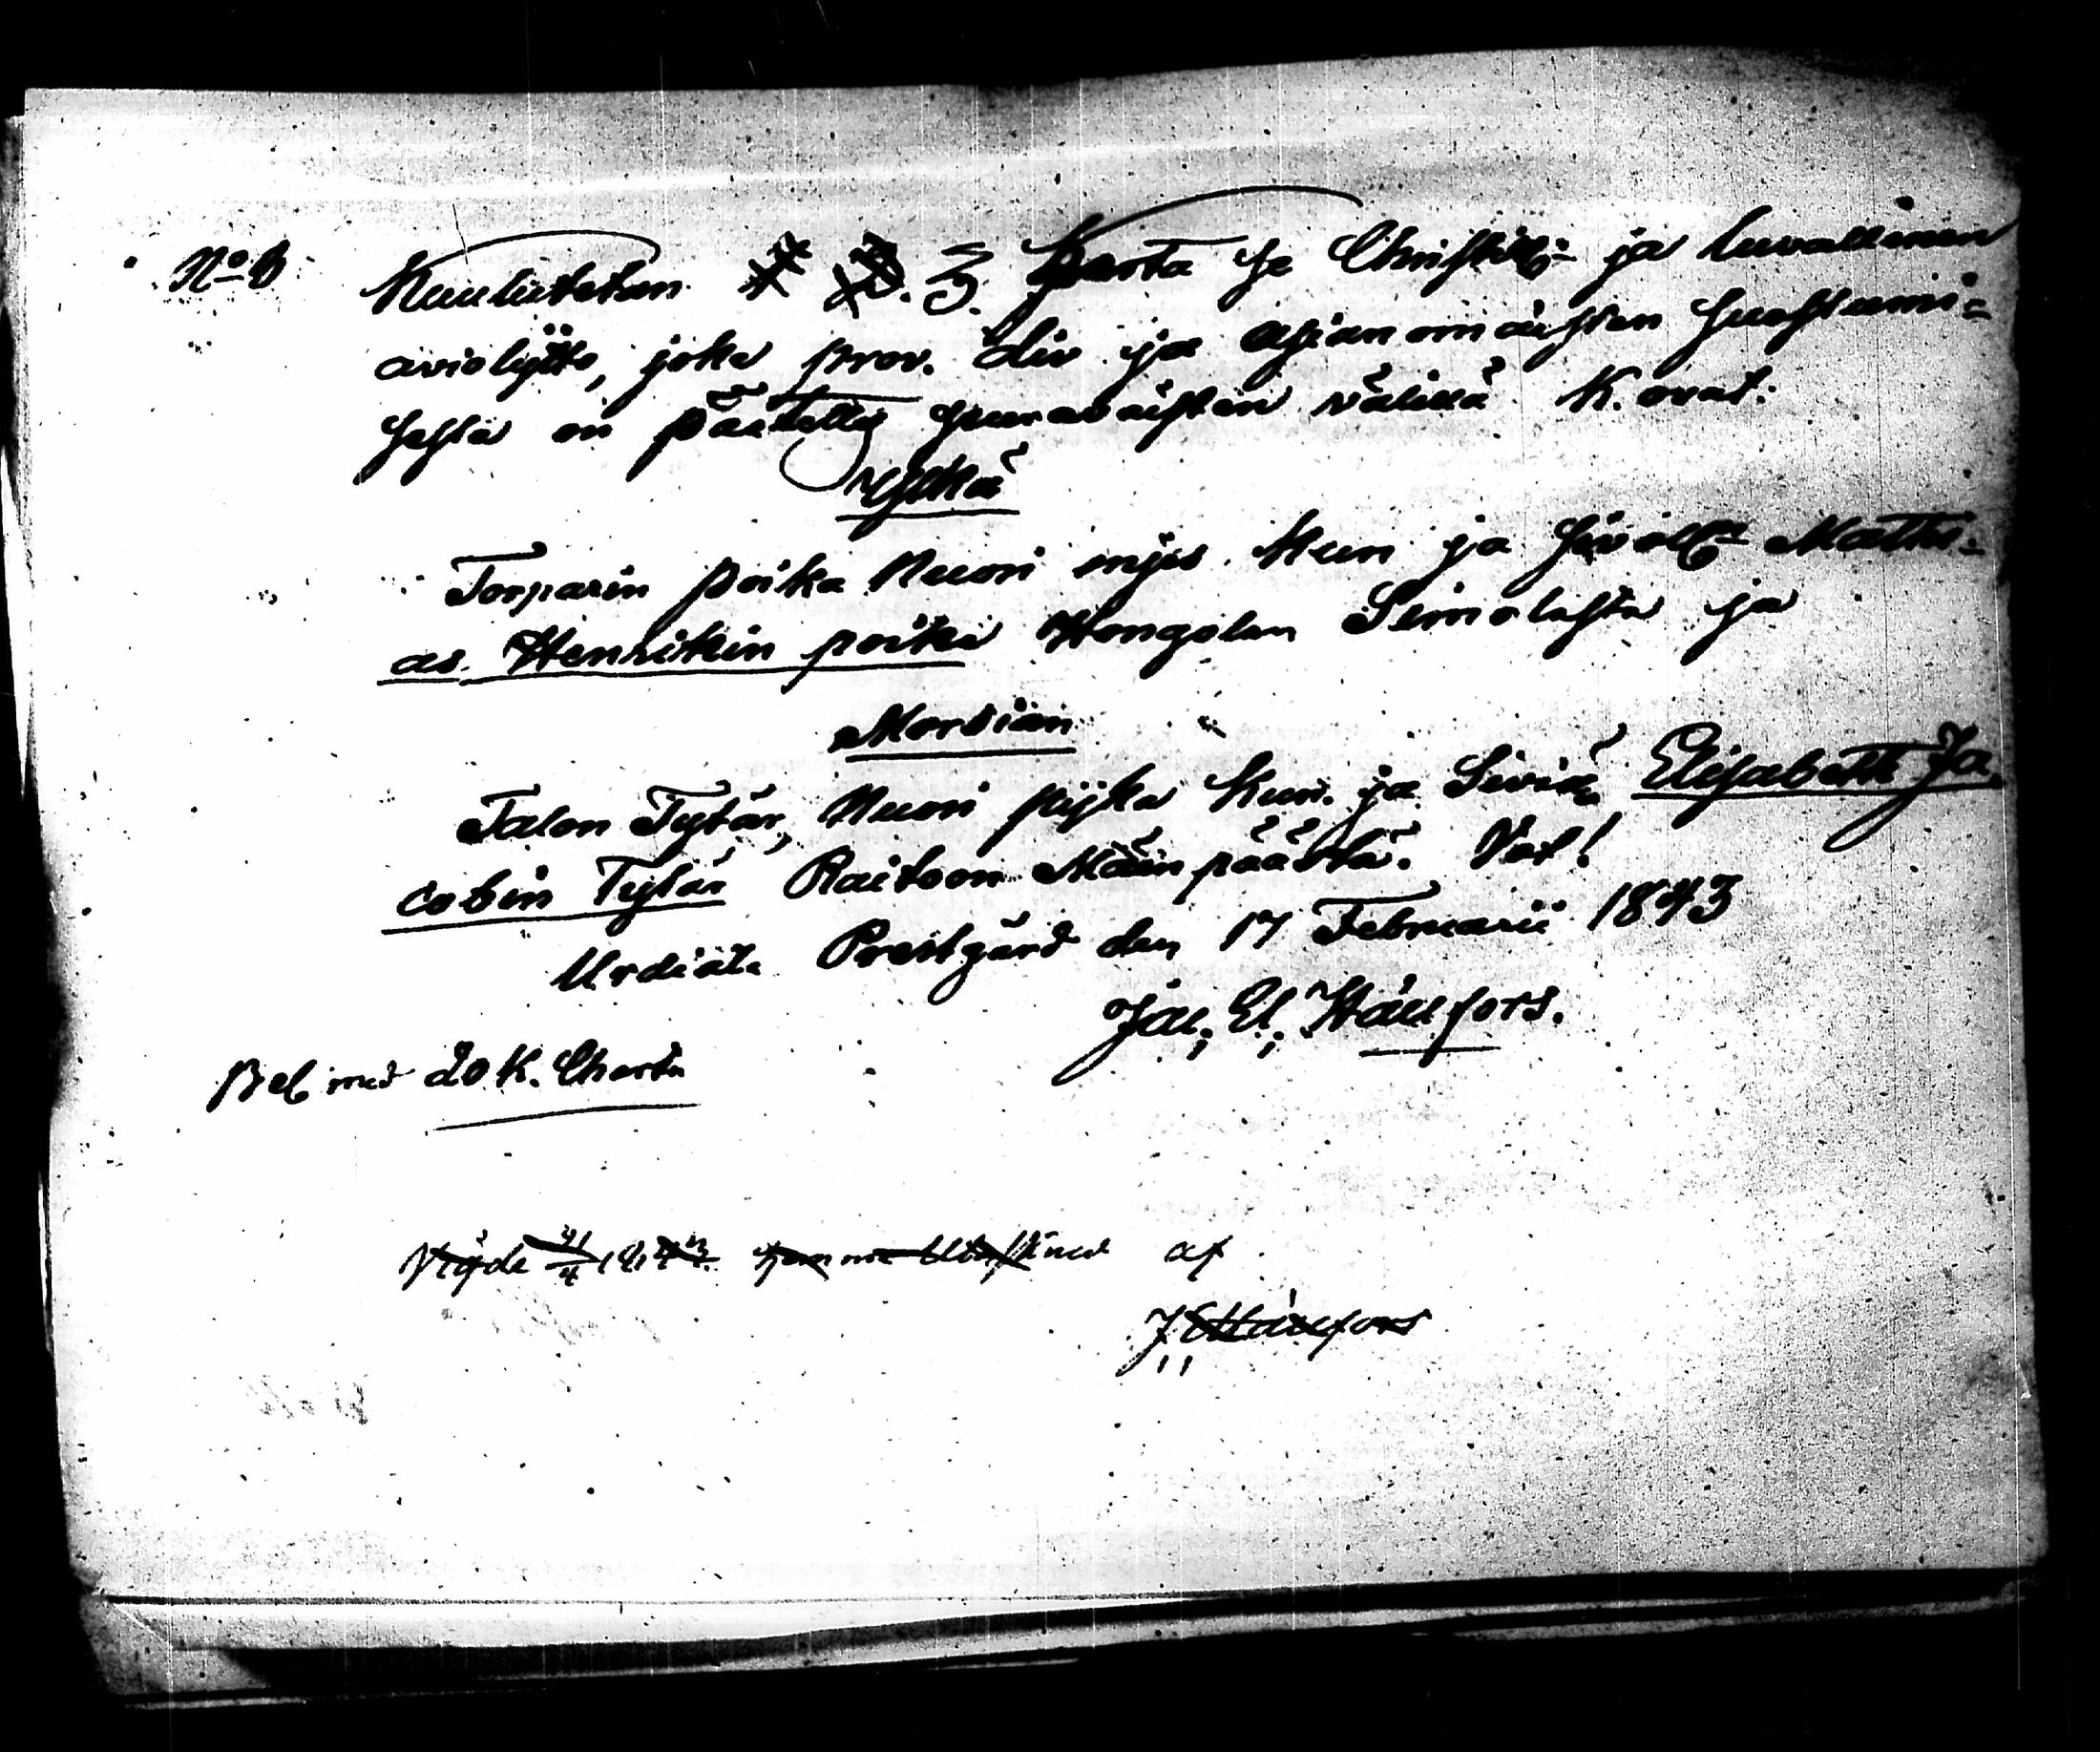 No 6 Kuulutetan 1 2. 3. Kerta se Christill:n ja luvallinen
aviolijtto, joka prov. div ja asianomaisten suostumi=
sesta on päätetty seuravaisten välillä K. ovat.
Ylkä
Torparin poika Nuori mjes Kun ja siviall:n Mathi=
as. Henrikin poika Hongolan Simolasta ja
Morsian
Talon Tytär, Nuori pijka Kun. ja Siviä Elisabeth Ja
cobin Tytär Raitoon Mäenpäästä. Vat!
Urdiala Prestgård den 17 Februarii 1843
Jac; El; Hällfors.
Bel med 20 K. Charta
Vigde 4 af
J Hällfors